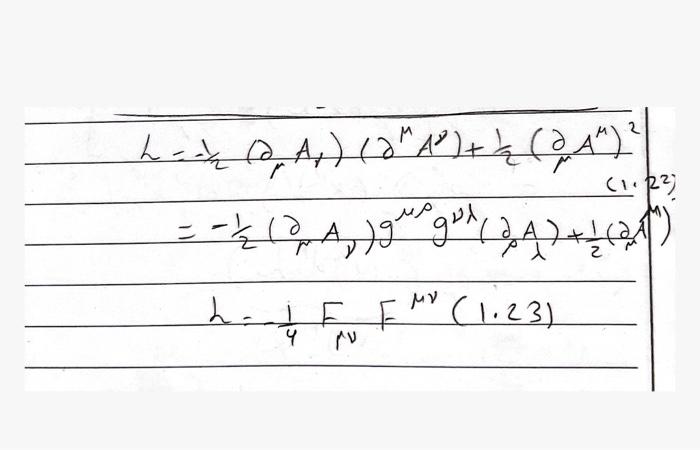 L = -½ (∂_μ A_ν) (∂^μ A^ν) + ½ (∂_μ A^μ)²
(1.22)
= -½ (∂_μ A_ν) g^{μρ} g^{νλ} (∂_ρ A_λ) + ½ (∂_μ A^μ)
L = -¼ F_{μν} F^{μν} (1.23)